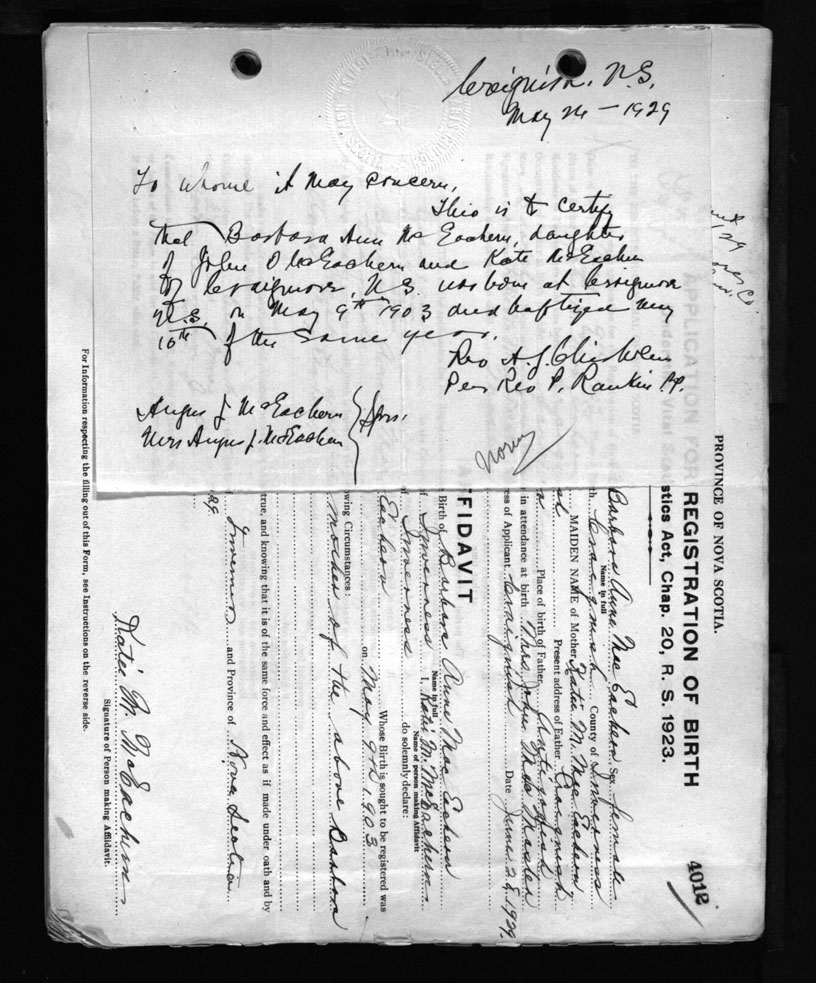 Craignish, N.S.
May 24 — 1929
To whome it May Concern,
This is to Certify
that Barbara Ann McEachern, daughter
of John D McEachern and Kate McEachern
of Craignish, N.S. was born at Craignish
N.S. on May 9th 1903 and baptized May
10th of the same year.
Rev A. J. Chisholm
Per Rev P. Rankin P.P.
Angus J McEachern } Sprs.
Mrs Angus J. McEachern
PROVINCE OF NOVA SCOTIA.
REGISTRATION OF BIRTH
4012
stics Act, Chap. 20, R. S. 1923.
Barbara Anne Mac Eachern Sex female
Name in full
Craignish County of Inverness
MAIDEN NAME of Mother Katie M. Mac Eachern
Present address of Father Craignish
Place of birth of Father Antigonish
in attendance at birth Mrs John Mac Master
ress of Applicant Craignish Date June 28, 1929.
FFIDAVIT
Birth of Barbara Anne Mac Eachern
Name in full
of Inverness I, Katie M. McEachern
Name of person making Affidavit
of Inverness do solemnly declare:
Eachern Whose Birth is sought to be registered was
on May 9th 1903
owing Circumstances:
mother of the above Barbara
true, and knowing that it is of the same force and effect as if made under oath and by
Inverness and Province of Nova Scotia
Katie M. McEachern
Signature of Person making Affidavit.
For Information respecting the filling out of this Form, see Instructions on the reverse side.